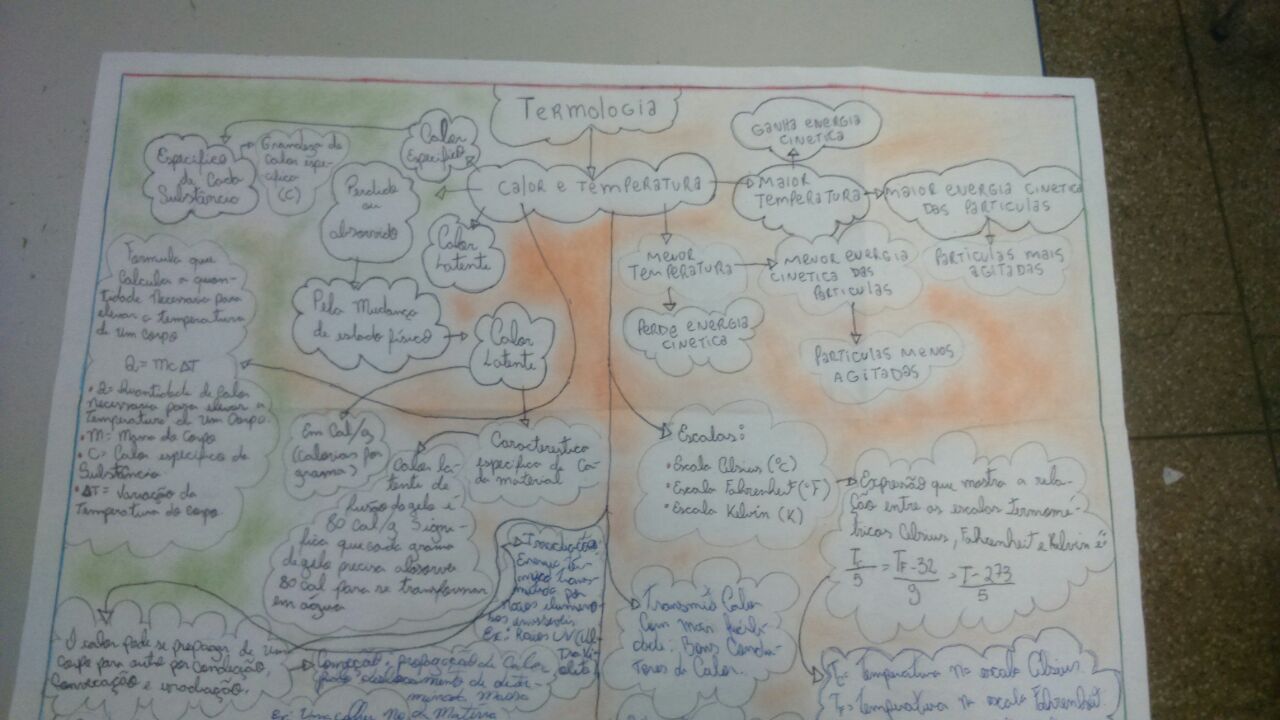 Termologia
Calor
Específico
Específico
de Cada
Substância
Grandeza de
Calor espe-
cífico
(C)
Perdido
ou
absorvido
Calor e Temperatura
Ganha energia
cinetica
Maior
Temperatura
Maior energia cinetica
das particulas
Particulas mais
agitadas
Menor
Temperatura
Menor energia
cinetica das
particulas
Perde energia
cinetica
Particulas menos
agitadas
Calor
Latente
Pela Mudança
de estado físico
Calor
Latente
Formula que
Calcula a quan-
tidade Necessaria para
elevar a temperatura
de um Corpo
Q = mcΔT
• Q= Quantidade de Calor
necessaria para elevar a
Temperatura de um Corpo.
• M= Massa do Corpo
• C= Calor específico da
Substância
• ΔT= Variação da
Temperatura do corpo
Em Cal/g
(Calorias por
grama)
Caracteristica
específica de Ca-
da material
Calor la-
tente de
fusão do gelo é
80 Cal/g Signi-
fica que cada grama
de gelo precisa absorver
80 Cal para se transformar
em agua
Escalas:
• Escala Célsius (°C)
• Escala Fahrenheit (°F)
• Escala Kelvin (K)
Expressão que mostra a rela-
ção entre as escalas termomé-
tricas Célsius, Fahrenheit e Kelvin é:
Tc/5 = TF-32/9 = T-273/5
Irradiação:
Energia tér-
mica trans-
mitida por
Ex: Raios UV (Ul
Transmite Calor
Com mais facili-
dade: Bons Condu-
tores de Calor.
O calor pode se propagar de um
Corpo para outro por Condução,
Convecção e irradiação.
Convecção: propagação de Calor
pelo deslocamento de
massa
Tc= Temperatura na escala Célsius.
TF= Temperatura na escala Fahrenheit.